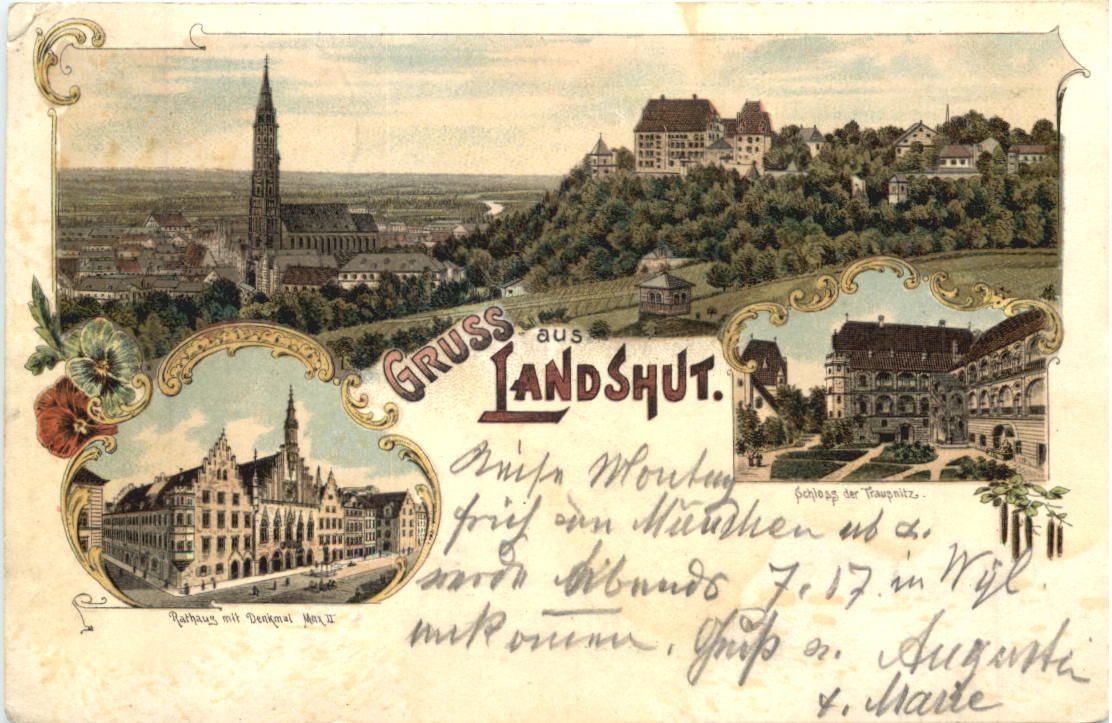 GRUSS aus
LANDSHUT.
Schloss der Trausnitz.
Rathaus mit Denkmal Max II
Reise Montag
früh von München ab u.
werde Abends 7.07 in Wyl
ankommen. Gruß v. Augustin
u. Marie